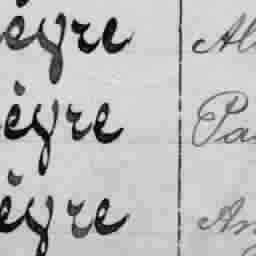 ègre Al
ègre Pa
ègre An